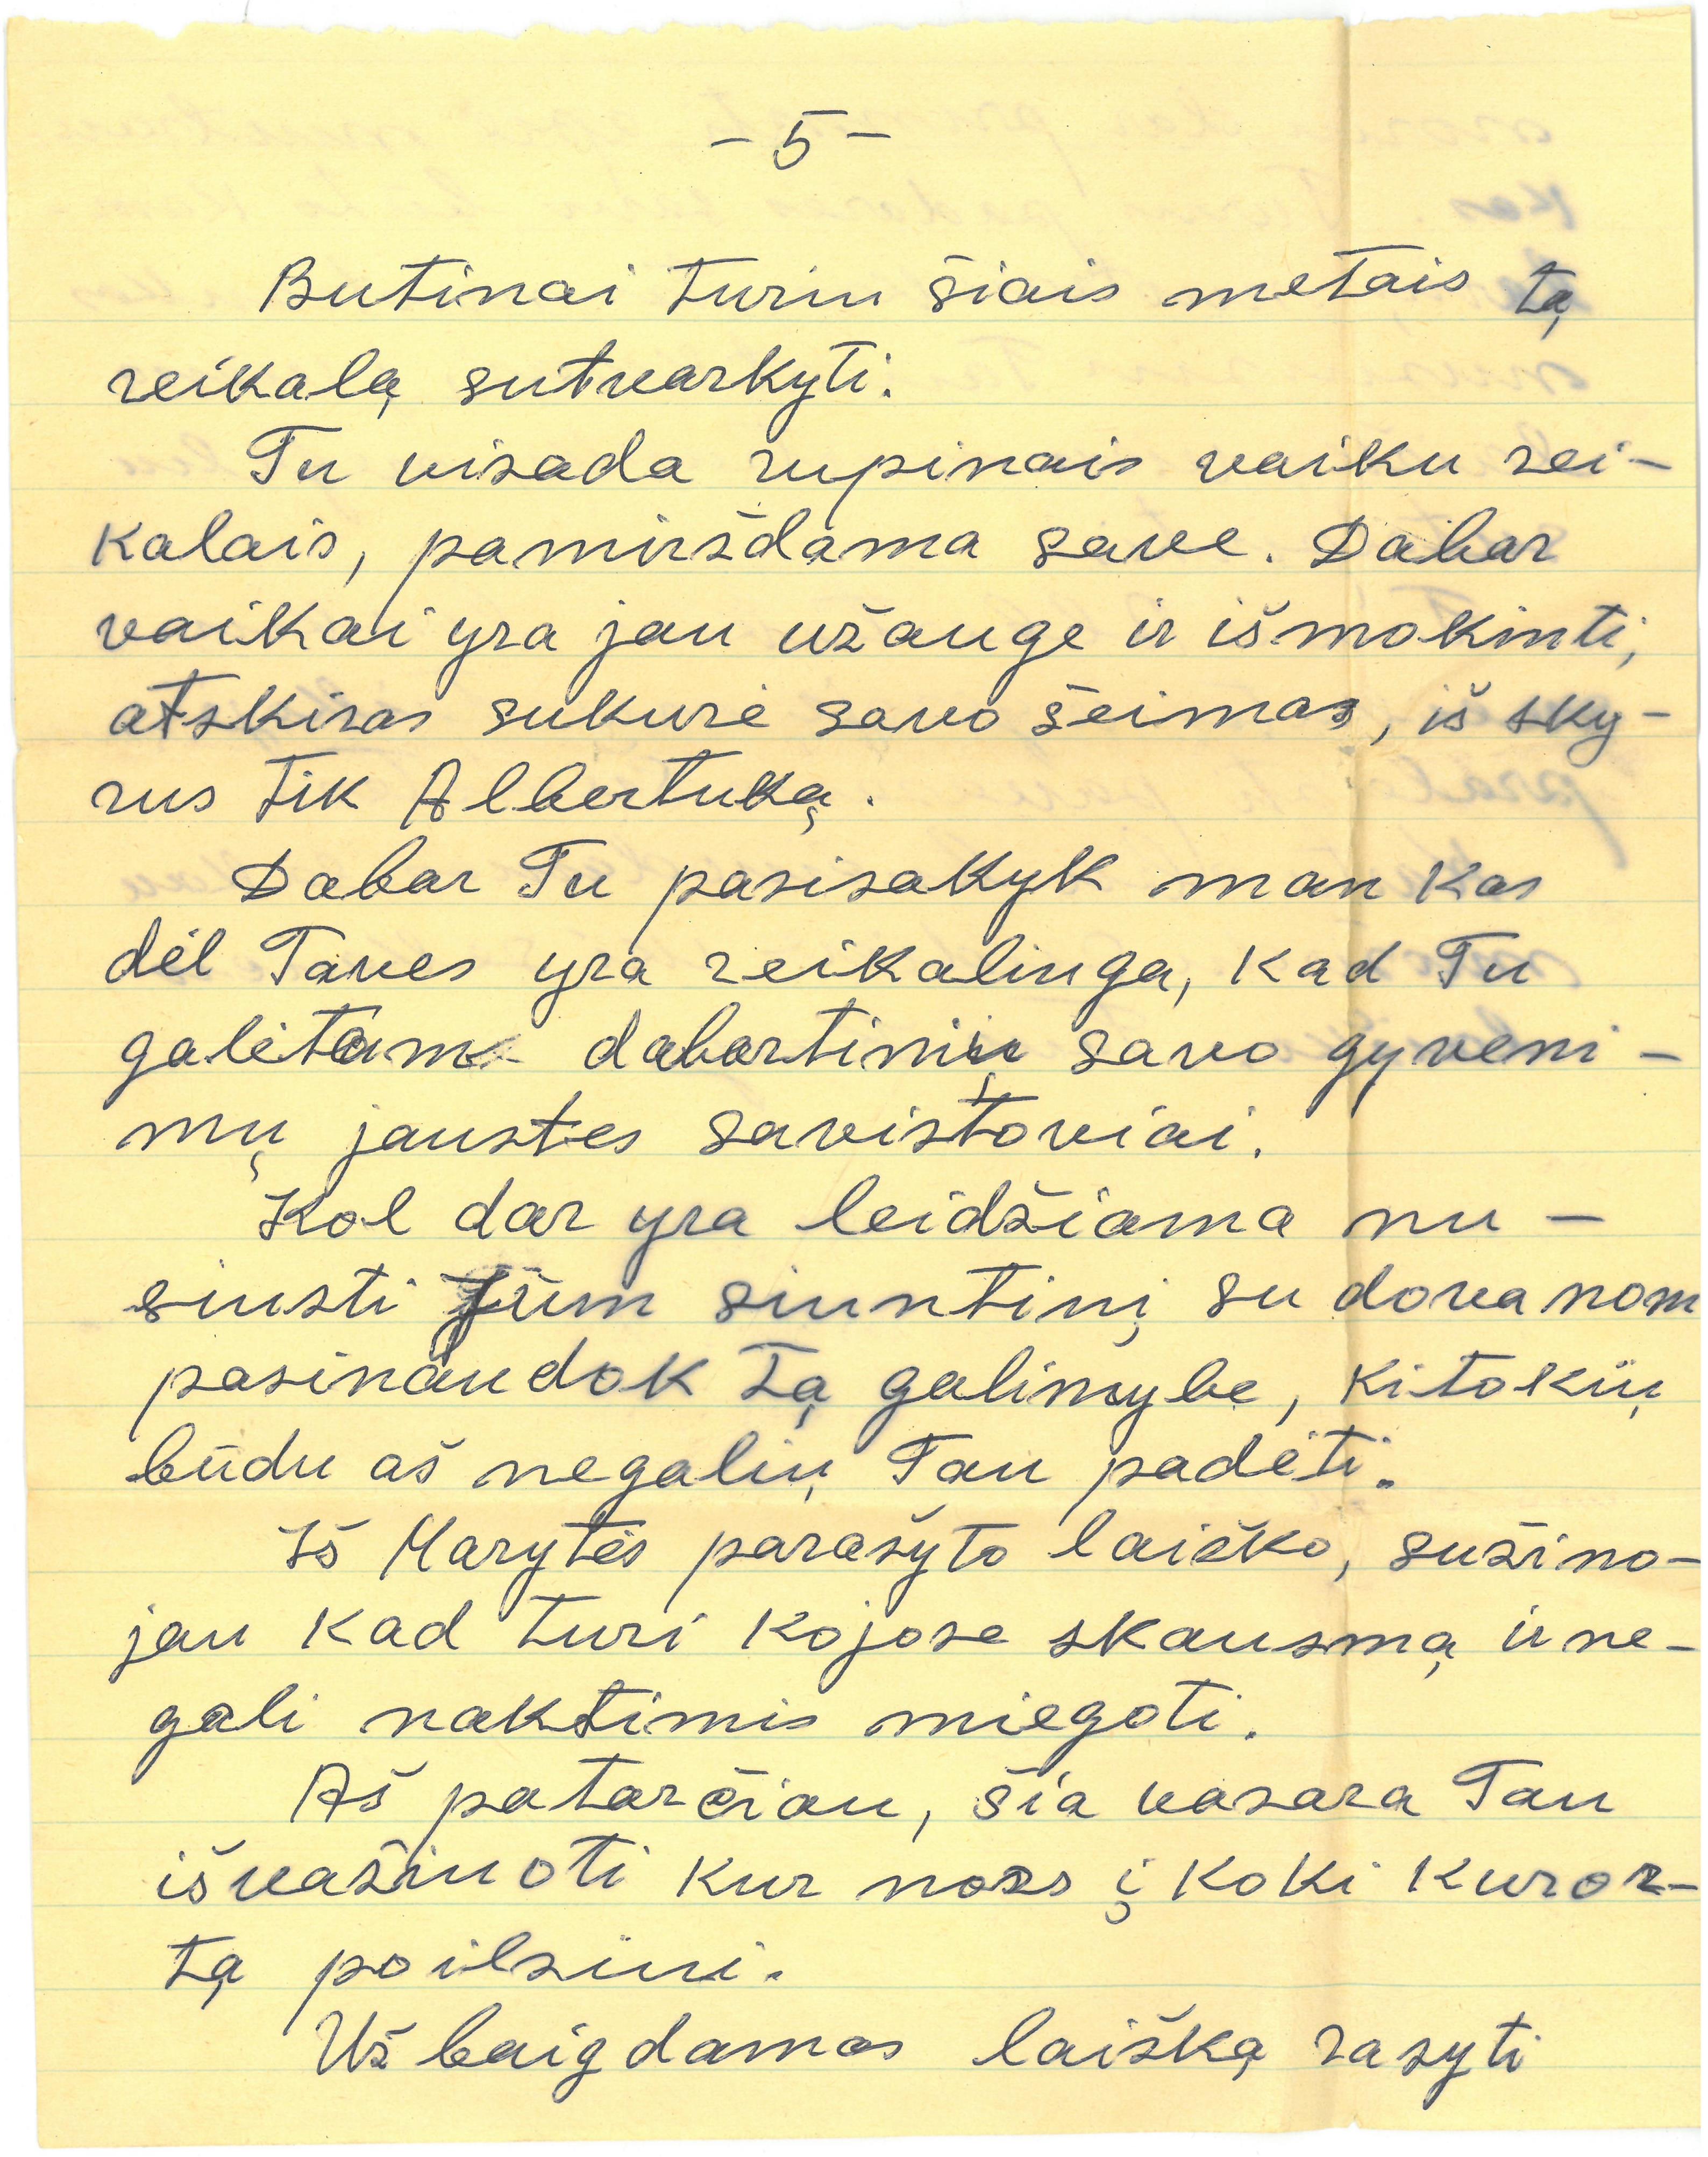 - 5 -
Butinai turiu šiais metais tą
reikalą sutvarkyti.
Tu visada rupinais vaiku rei-
kalais, pamiršdama save. Dabar
vaikai yra jau užauge ir išmokinti,
atskiras sukurė savo šeimas, iš sky-
rus tik Albertuką.
Dabar Tu pasisakyk man kas
dėl Taves yra reikalinga, kad Tu
galėtam dabartinių savo gyveni-
mų jaustes savistoviai.
Kol dar yra leidžiama nu-
siusti Jūm siuntinį su dovanom
pasinaudok tą galimybe, kitokių
būdu aš negalių Tau padėti.
Iš Marytės parašyto laiško, sužino-
jau kad turi kojose skausmą ir ne-
gali naktimis miegoti.
Aš patarčiau, šia vasara Tau
išvažiuoti kur nors į koki kuror-
tą poilsiui.
Už baigdamas laišką rasyti